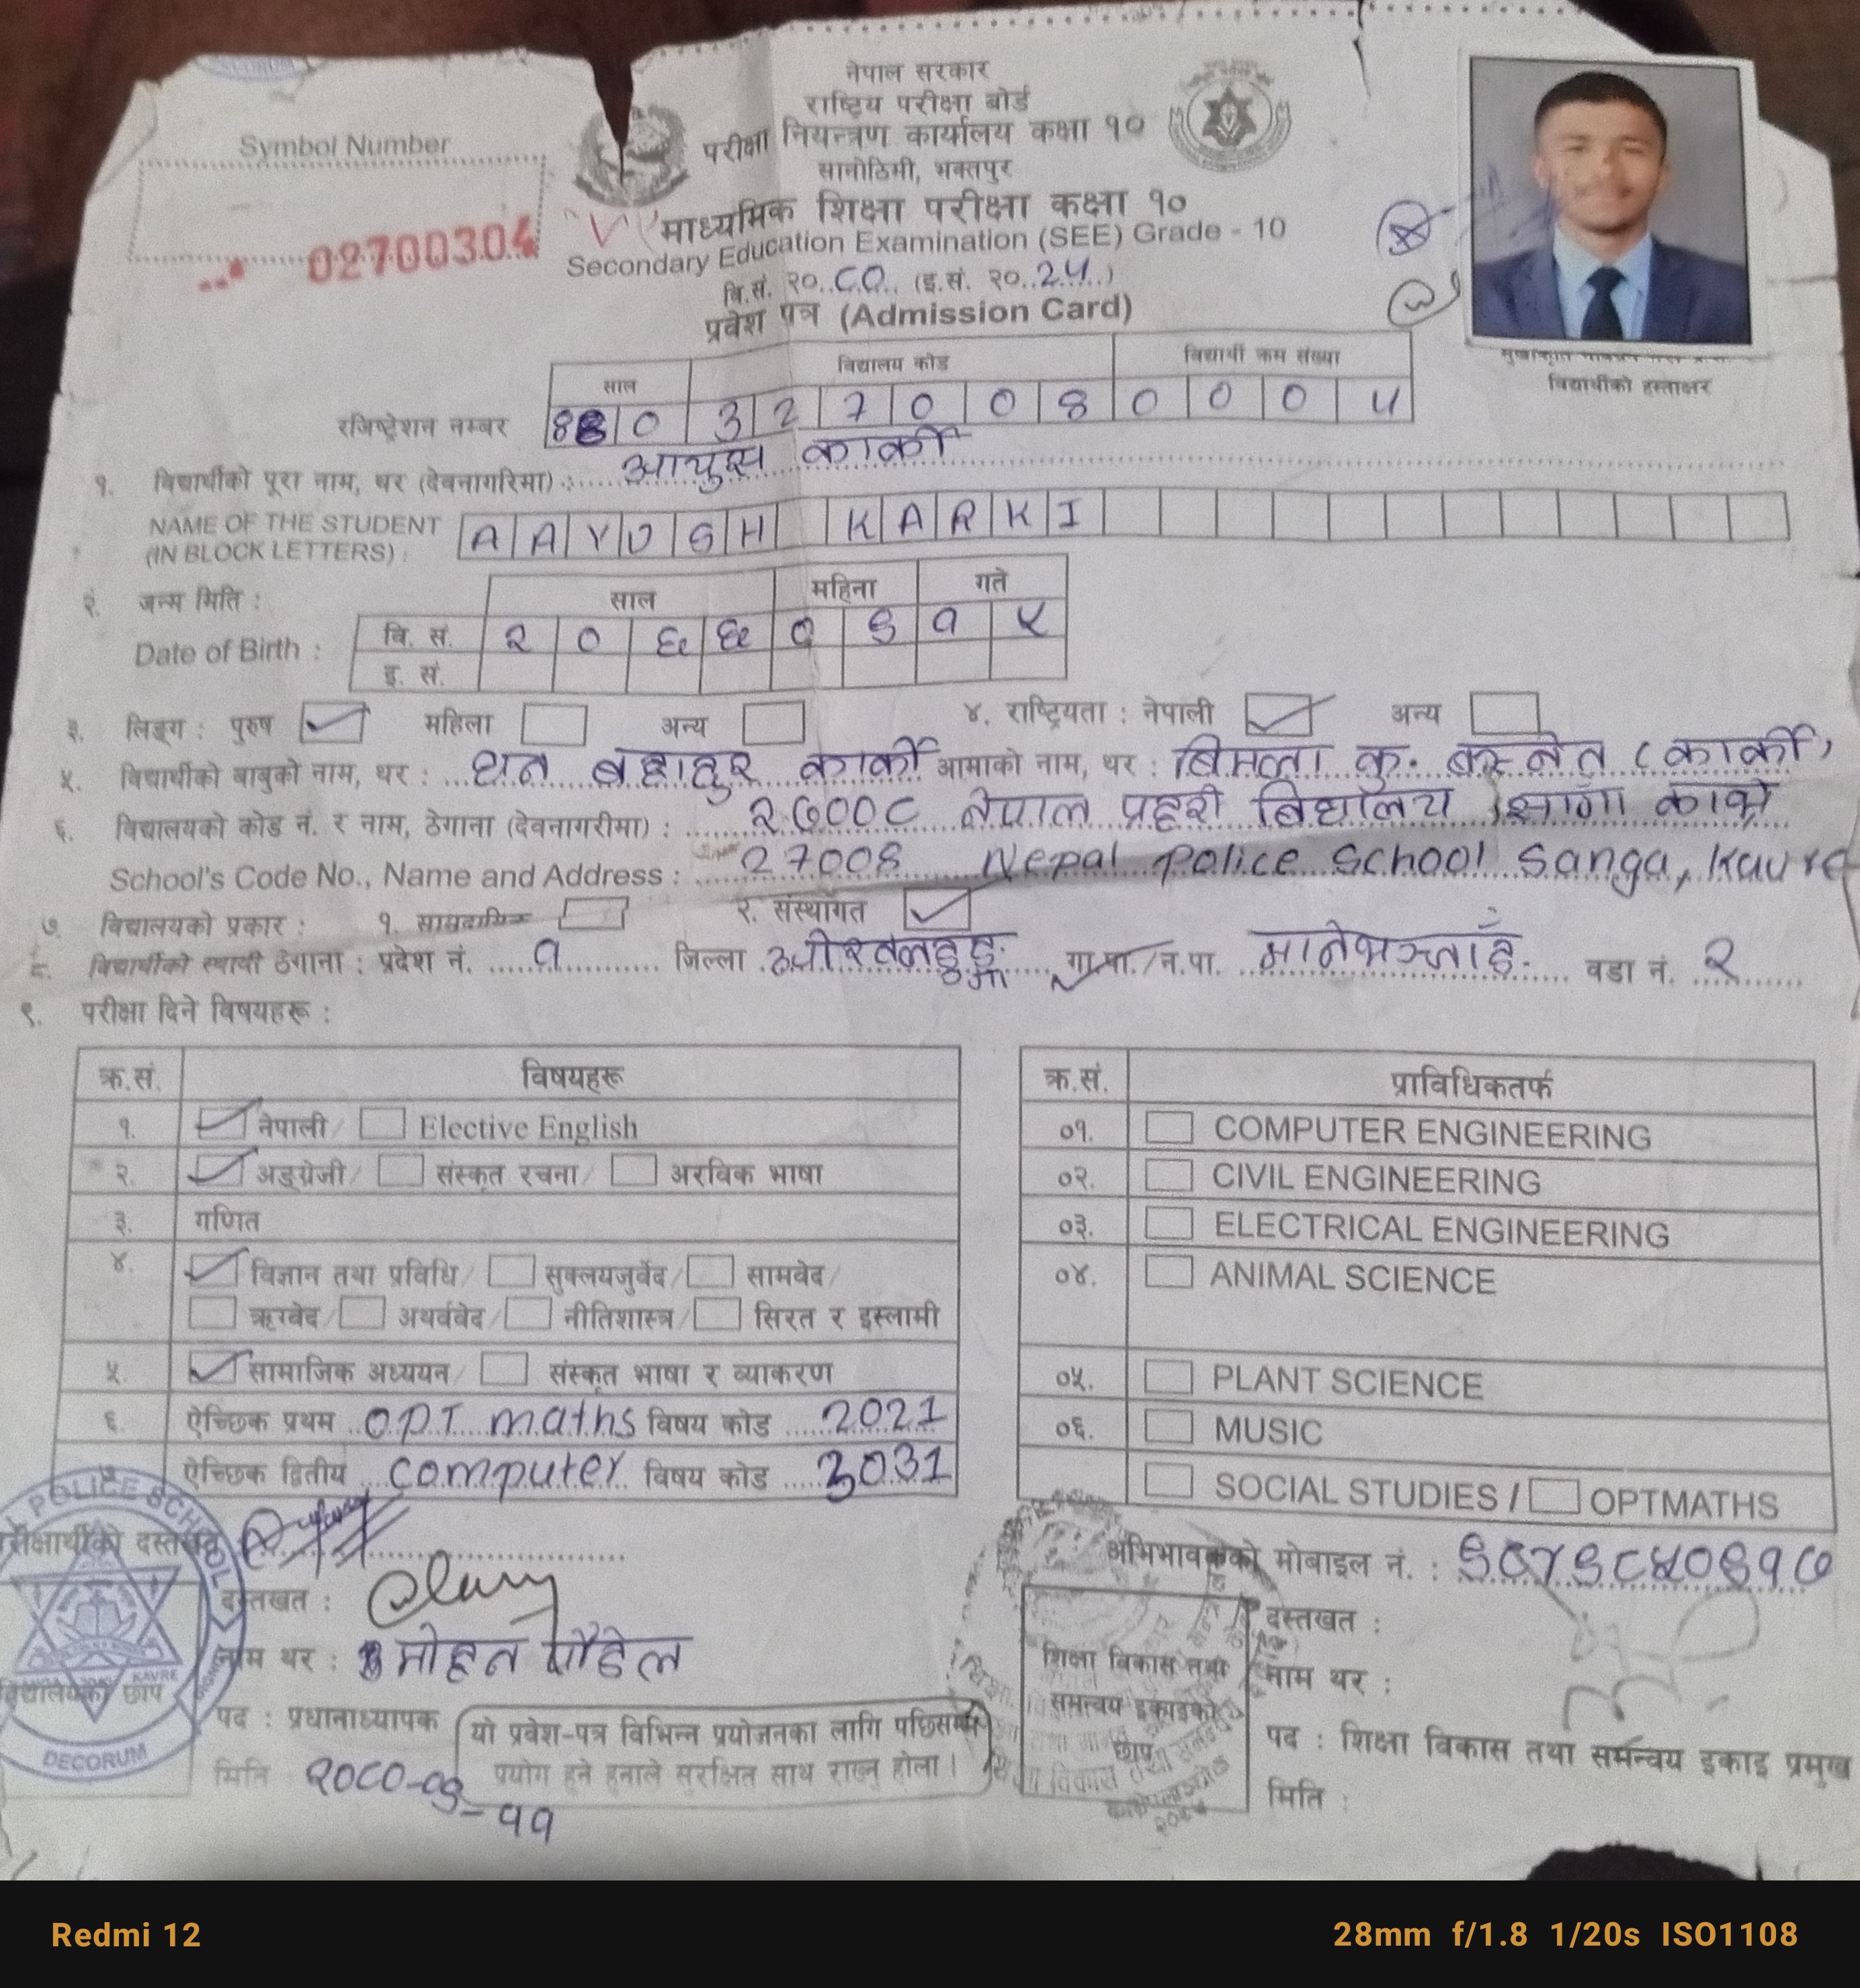 नेपाल सरकार
राष्ट्रिय परीक्षा बोर्ड
परीक्षा नियन्त्रण कार्यालय कक्षा १०
सानोठिमी, भक्तपुर
माध्यमिक शिक्षा परीक्षा कक्षा १०
Secondary Education Examination (SEE) Grade - 10
बि.सं. २०..८०.. (इ.सं. २०..24..)
प्रवेश पत्र (Admission Card)
Symbol Number
02700304
विद्यार्थीको हस्ताक्षर
साल विद्यालय कोड विद्यार्थी क्रम संख्या
रजिष्ट्रेशन नम्बर 0 3 2 7 0 0 8 0 0 0
१. विद्यार्थीको पूरा नाम, थर (देवनागरिमा) : आयुस कार्की
NAME OF THE STUDENT AAYUSH KARKI
(IN BLOCK LETTERS) :
२. जन्म मिति : साल महिना गते
Date of Birth : बि. सं. २ ० ६ ६ ० ९ १ ५
इ. सं.
३. लिङ्ग : पुरुष महिला अन्य ४. राष्ट्रियता : नेपाली अन्य
५. विद्यार्थीको बाबुको नाम, थर : धन बहादुर कार्की आमाको नाम, थर : बिमला कु. बस्नेत (कार्की)
६. विद्यालयको कोड नं. र नाम, ठेगाना (देवनागरीमा) : २७००८ नेपाल प्रहरी बिद्यालय साँगा काभ्रे
School's Code No., Name and Address : 27008 Nepal Police School Sanga, Kavre
७. विद्यालयको प्रकार : १. सामुदायिक २. संस्थागत
८. विद्यार्थीको स्थायी ठेगाना : प्रदेश नं. १ जिल्ला गा.पा./न.पा. मानेभञ्ज्याङ वडा नं. २
९. परीक्षा दिने विषयहरू :
क्र.सं. विषयहरू
१. नेपाली/ Elective English
२. अङ्ग्रेजी/ संस्कृत रचना/ अरविक भाषा
३. गणित
४. विज्ञान तथा प्रविधि/ सुक्लयजुर्वेद/ सामवेद/
ऋग्वेद/ अथर्ववेद/ नीतिशास्त्र/ सिरत र इस्लामी
५. सामाजिक अध्ययन/ संस्कृत भाषा र व्याकरण
६. ऐच्छिक प्रथम OPT maths विषय कोड 2021
ऐच्छिक द्वितीय computer विषय कोड 3031
क्र.सं. प्राविधिकतर्फ
०१. COMPUTER ENGINEERING
०२. CIVIL ENGINEERING
०३. ELECTRICAL ENGINEERING
०४. ANIMAL SCIENCE
०५. PLANT SCIENCE
०६. MUSIC
SOCIAL STUDIES / OPTMATHS
POLICE SCHOOL
KAVRE
DECORUM
परीक्षार्थीको दस्तखत
दस्तखत :
नाम थर : मोहन पौडेल
विद्यालयको छाप
पद : प्रधानाध्यापक
मिति २०८०-०९-११
यो प्रवेश-पत्र विभिन्न प्रयोजनका लागि पछिसम्म
प्रयोग हुने हुनाले सुरक्षित साथ राख्नु होला ।
अभिभावकको मोबाइल नं. :
शिक्षा विकास तथा
समन्वय इकाइको
छाप
दस्तखत :
नाम थर :
पद : शिक्षा विकास तथा समन्वय इकाइ प्रमुख
मिति :
Redmi 12
28mm f/1.8 1/20s ISO1108